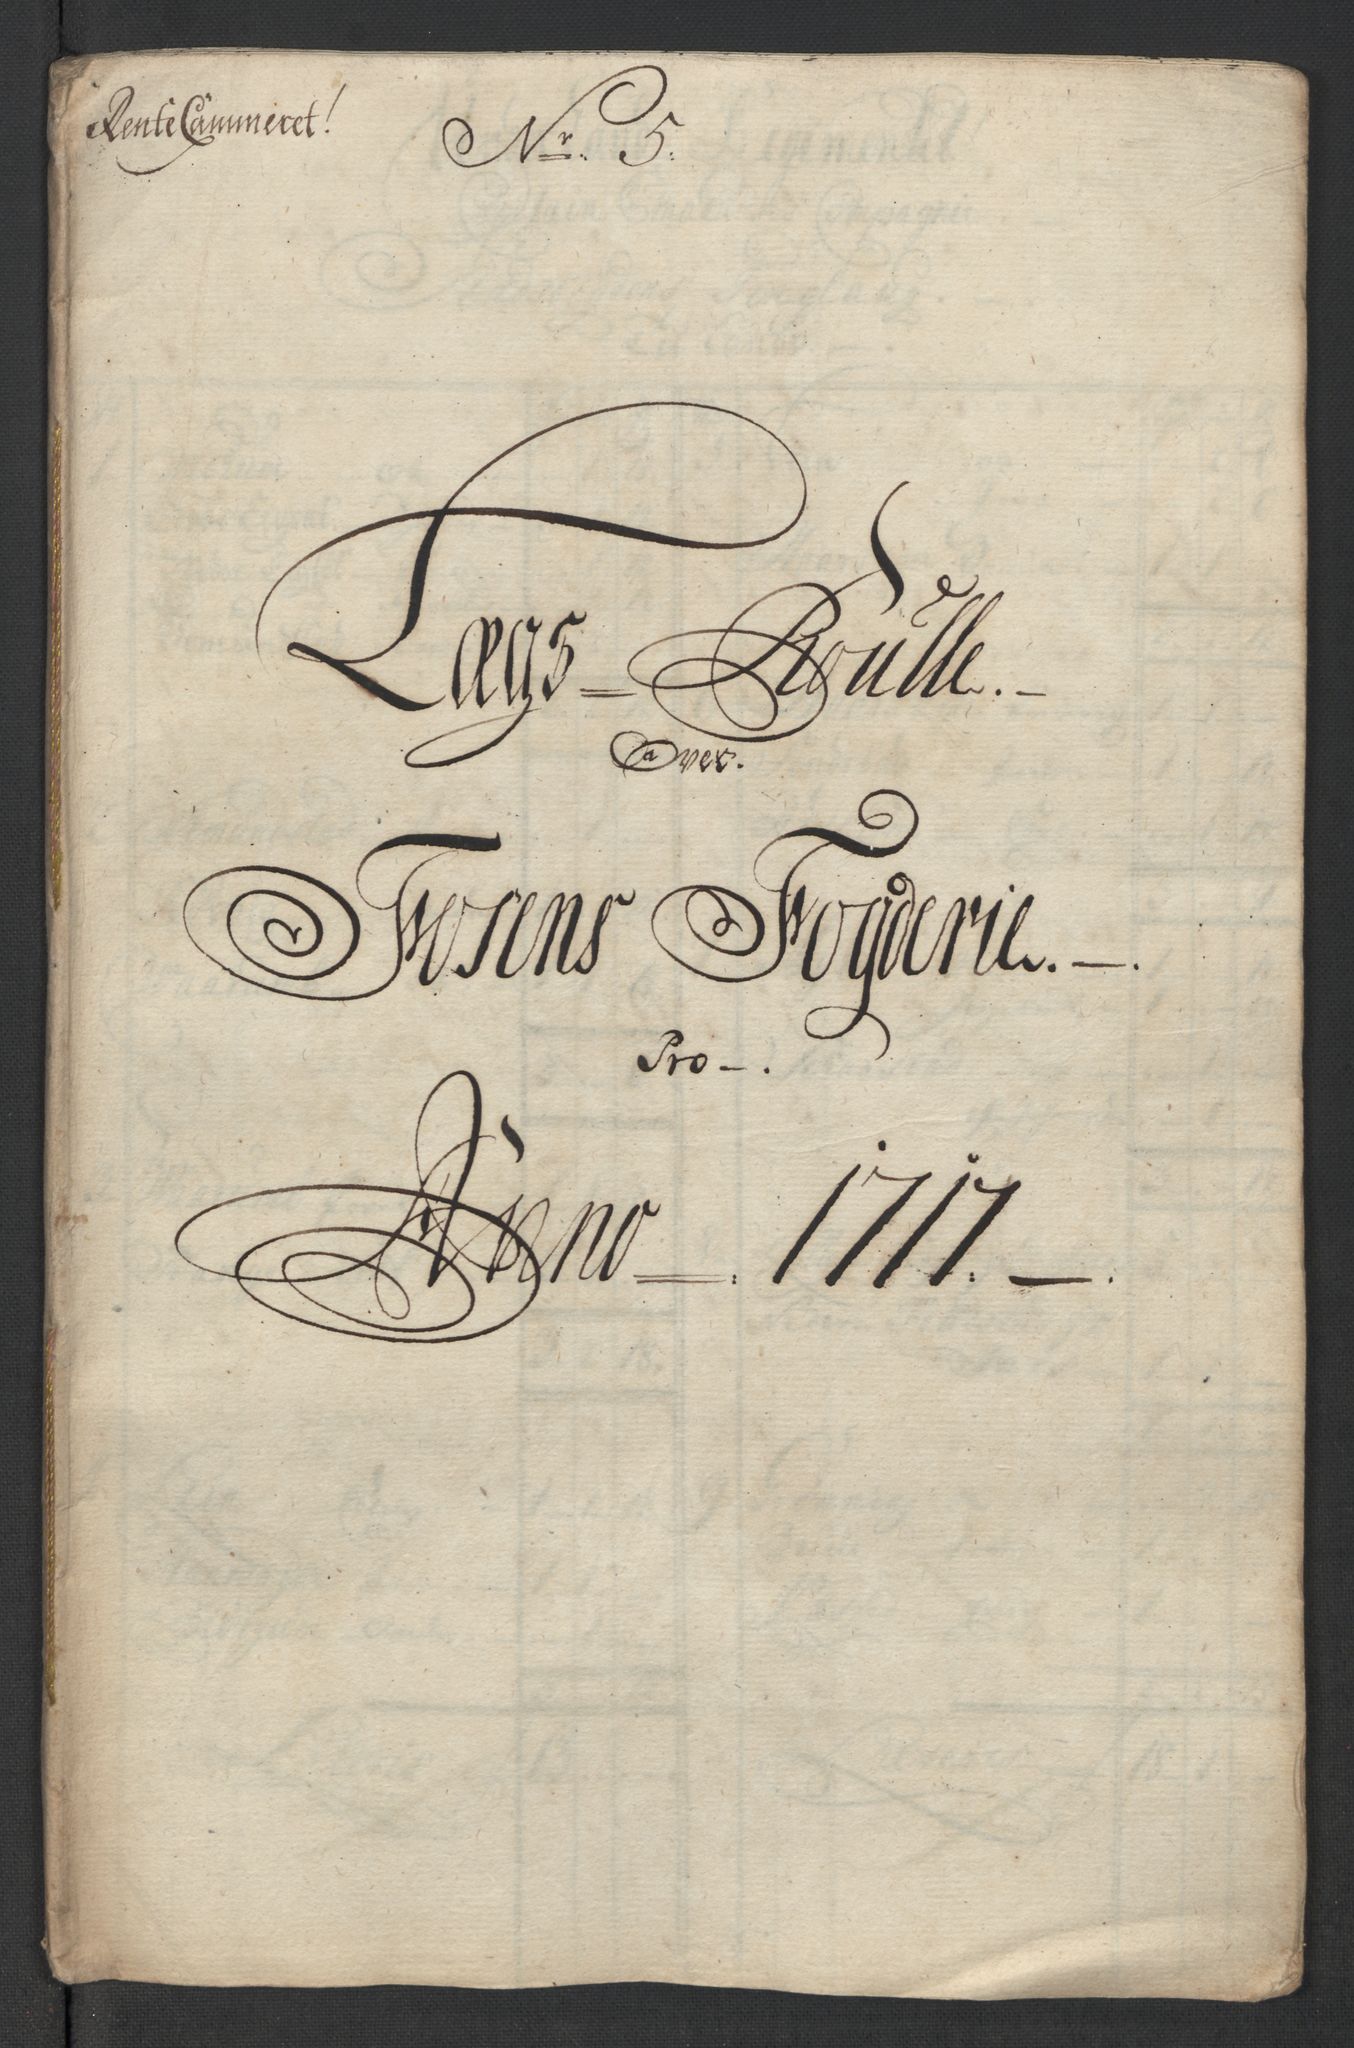 RenteCammeret!
Nr. 5.
Lægs - Roulle. -
Over.
Fosens Fogderie. -.
Pro -.
Anno -. 1717. -.